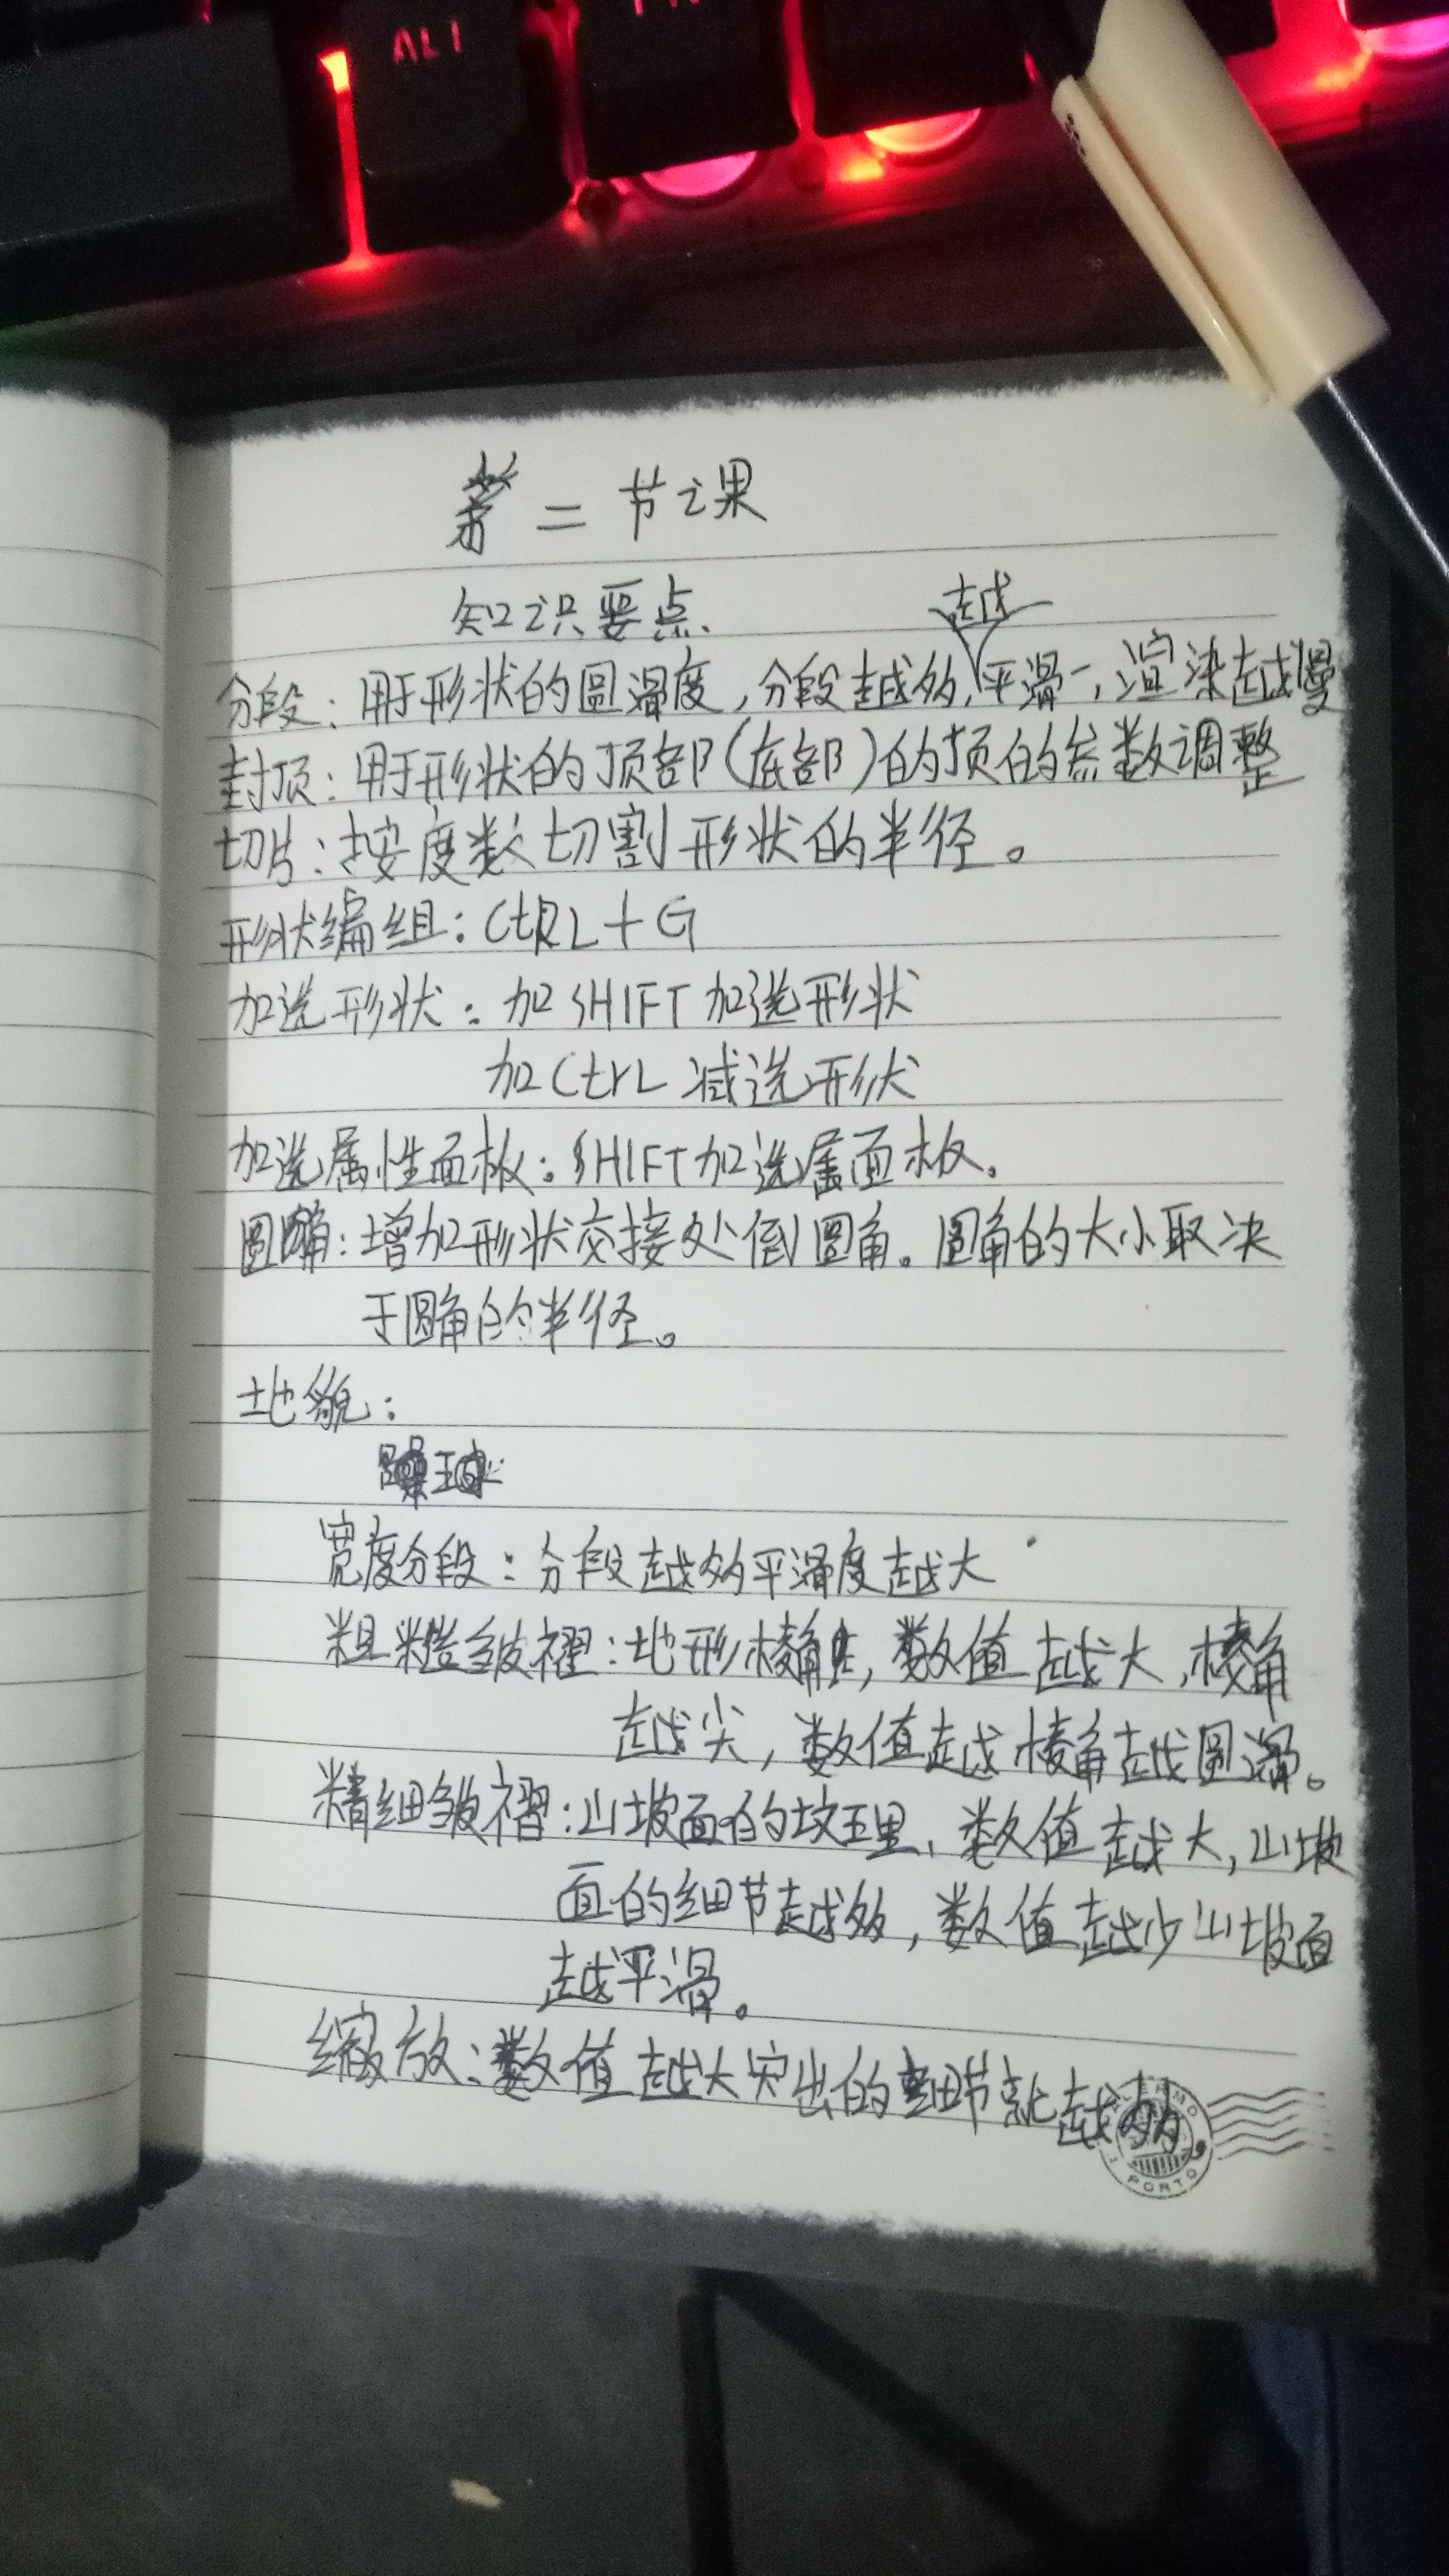 ALT
第二节课
知识要点
分段：用于形状的圆滑度，分段越多，越平滑，渲染越慢
封顶：用于形状的顶部（底部）的顶的参数调整
切片：按度数切割形状的半径。
形状编组：CtRL+G
加选形状：加SHIFT加选形状
加CtrL减选形状
加选属性面板：SHIFT加选属面板。
圆角：增加形状交接处倒圆角。圆角的大小取决
于圆角的半径。
地貌：
宽度分段：分段越多平滑度越大
粗糙皱褶：地形棱角，数值越大，棱角
越尖，数值越棱角越圆滑。
精细皱褶：山坡面的纹理，数值越大，山坡
面的细节越多，数值越少山坡面
越平滑。
缩放：数值越大突出的细节就越多
PORTO